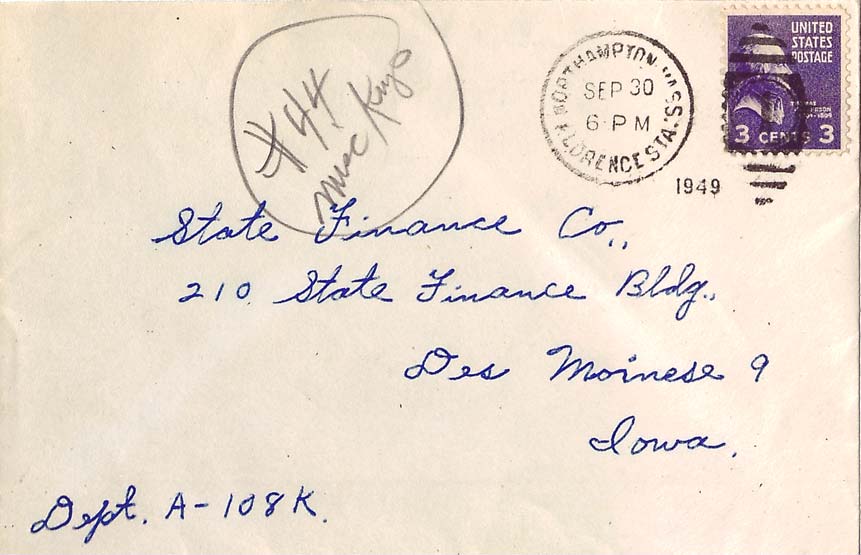 UNITED
STATES
POSTAGE
NORTHAMPTON, MASS
SEP 30
6 PM
FLORENCE STA.
1949
3 CENTS 3
#44
State Finance Co.,
210 State Finance Bldg.,
Des Moinese 9
Iowa.
Dept. A-108K.